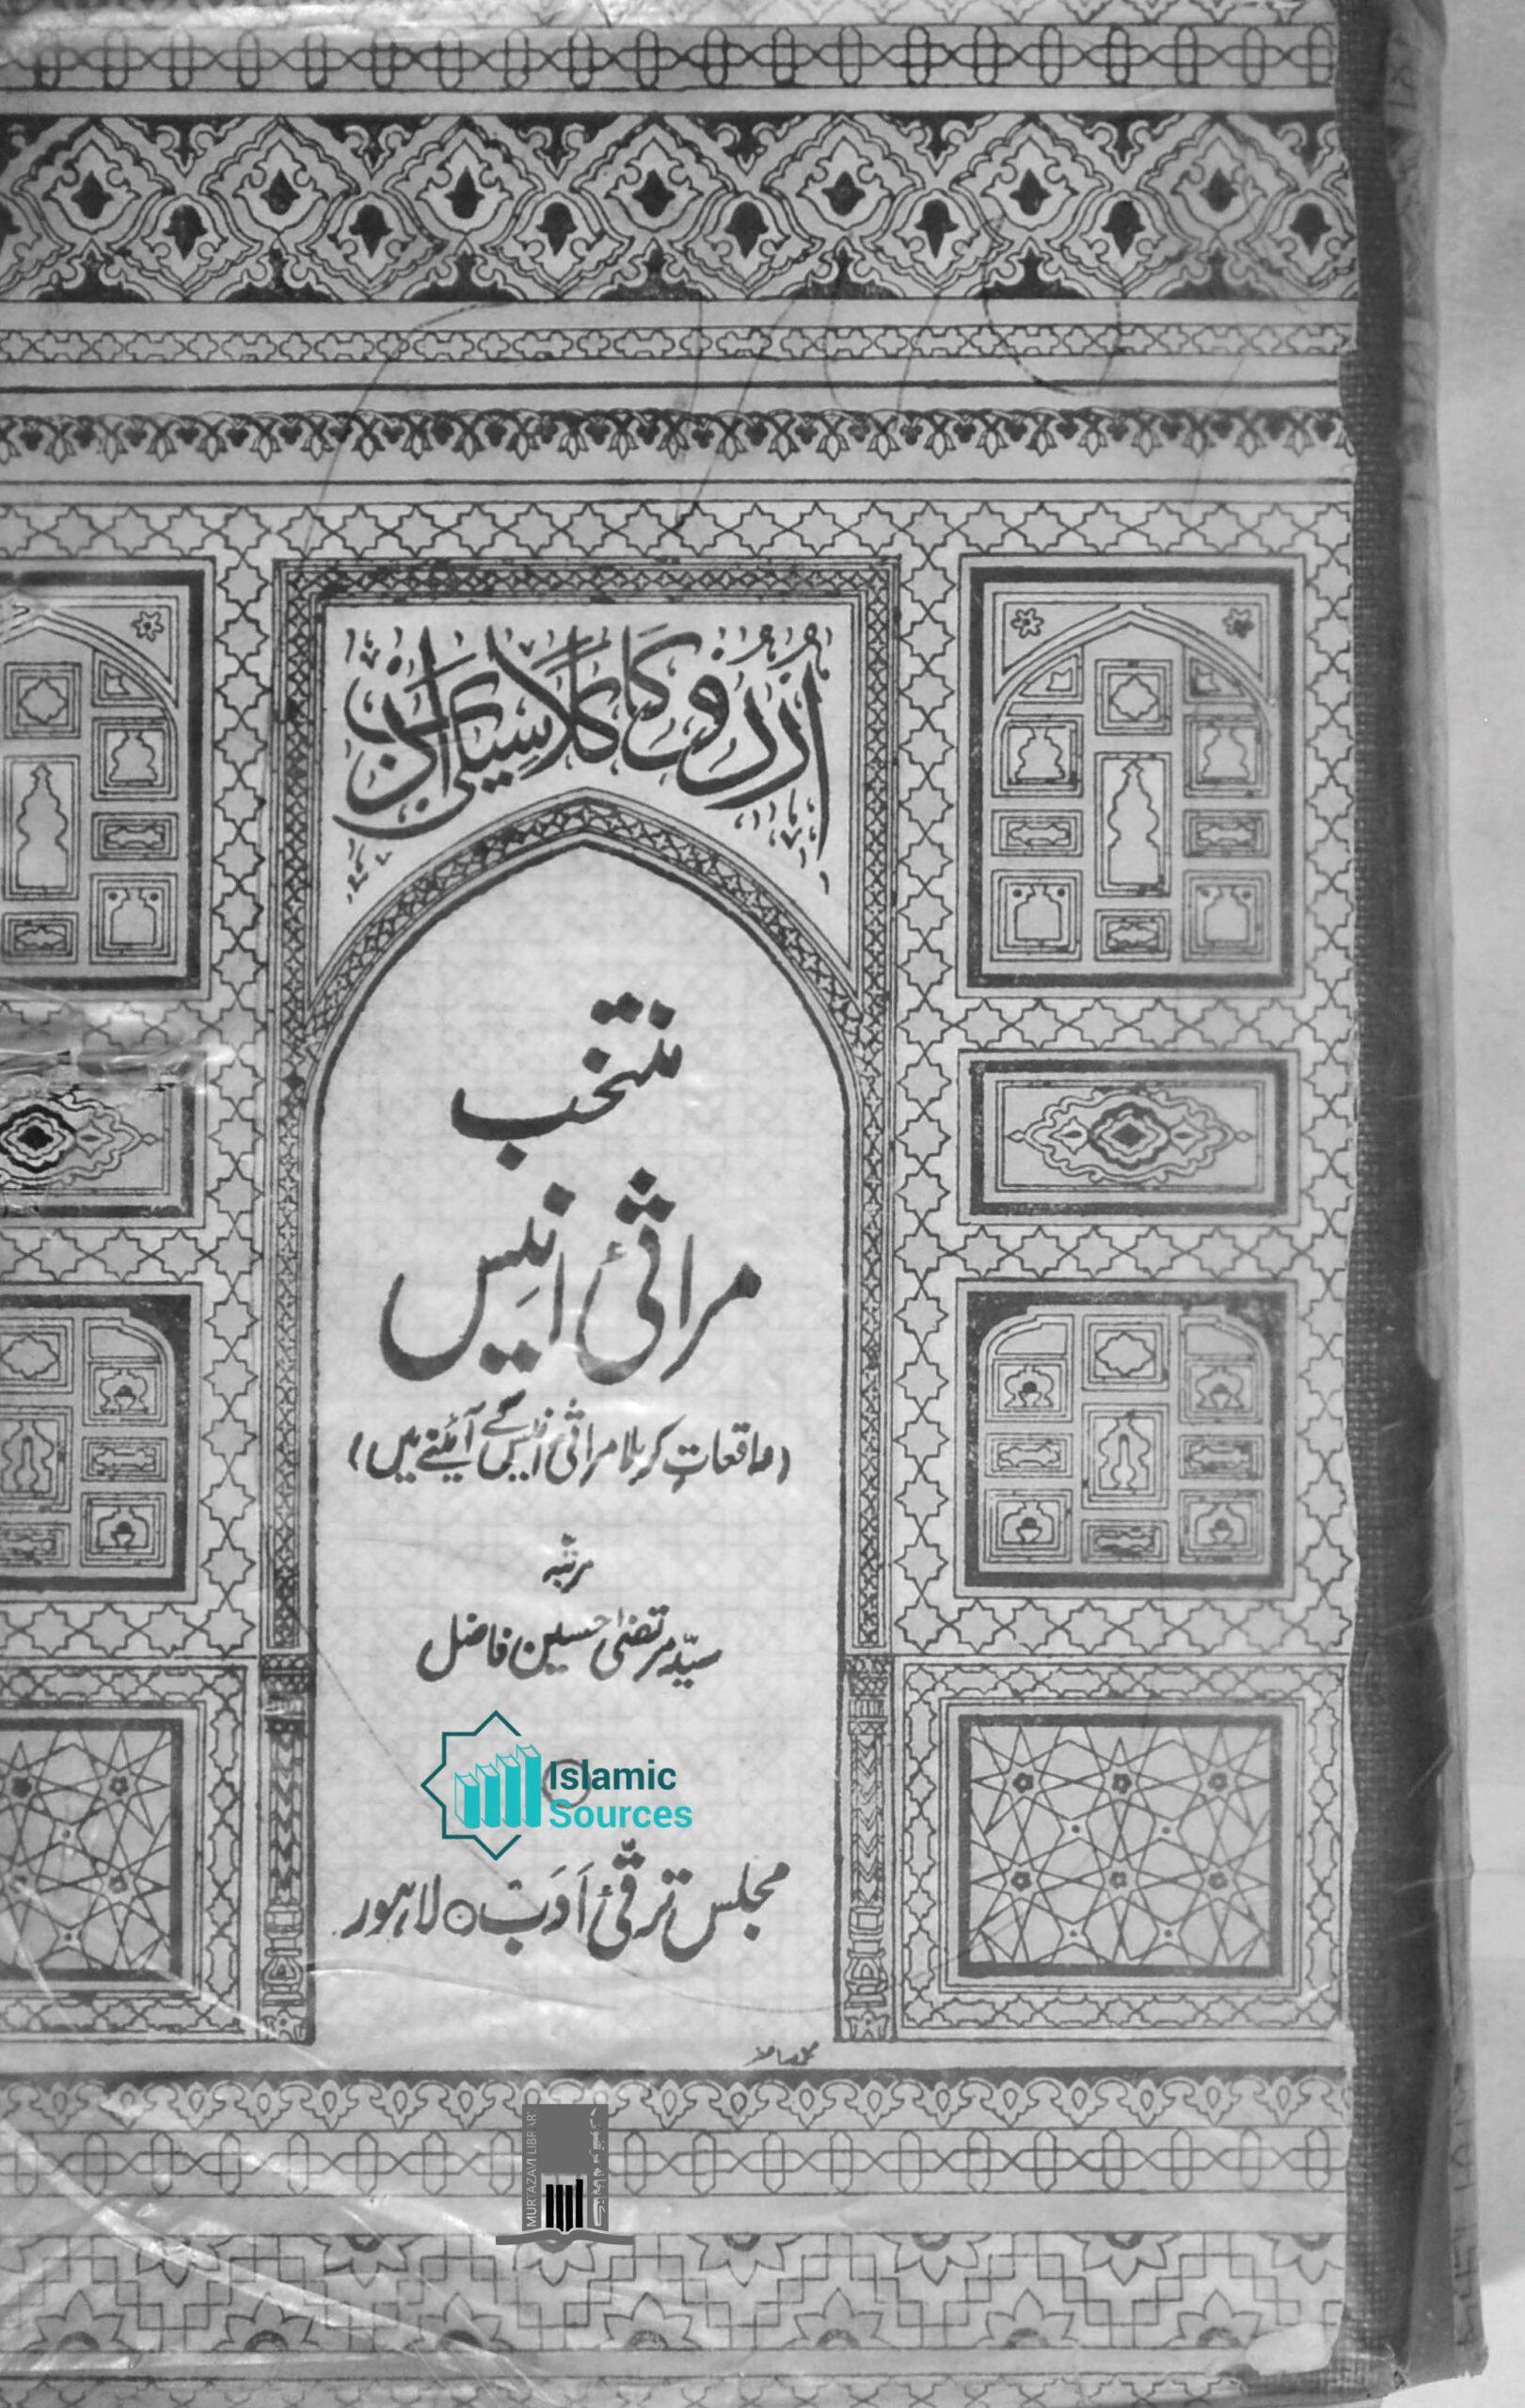 اردو کا کلاسیکی ادب
منتخب
مراثیٔ انیس
(واقعاتِ کربلا مراثیٔ انیس کے آئینے میں)
مرتبہ
سیّد مرتضیٰ حسین فاضل
Islamic
Sources
مجلس ترقیٔ ادب ○ لاہور
MURTAZAVI LIBRARY